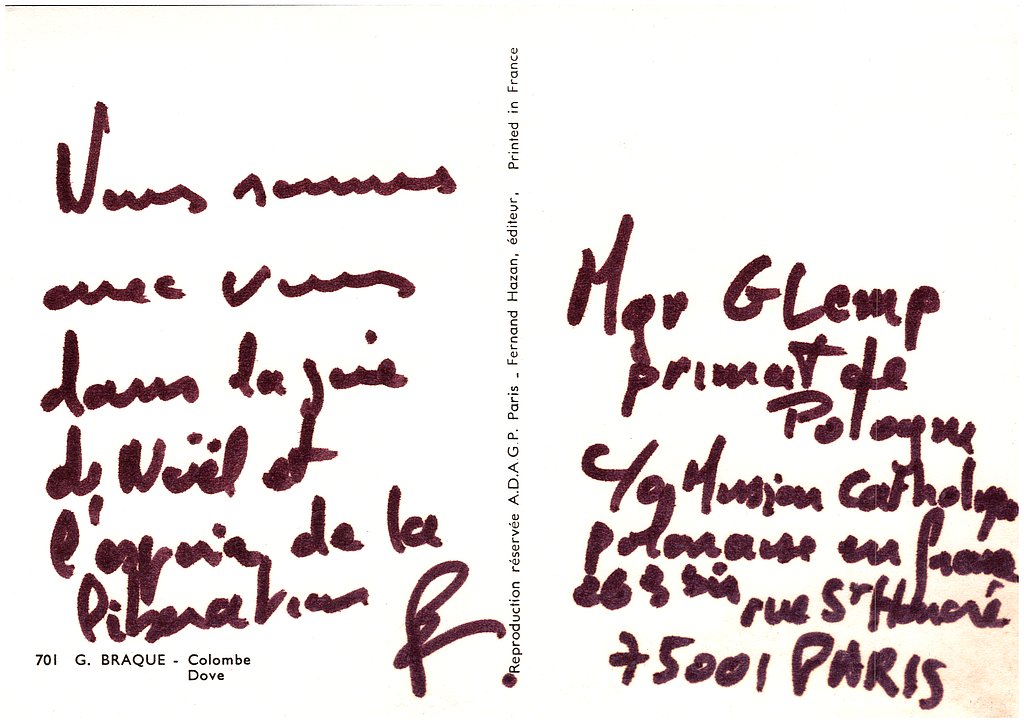 Nous sommes
avec vous
dans la joie
de Noël et
l'espoir de la
libération
701 G. BRAQUE - Colombe
Dove
Reproduction réservée A.D.A.G.P. Paris - Fernand Hazan, éditeur, Printed in France
Mgr GLemp
primat de
Pologne
c/o Mission Catholique
polonaise en france
263 bis
rue St Honoré
75001 PARIS